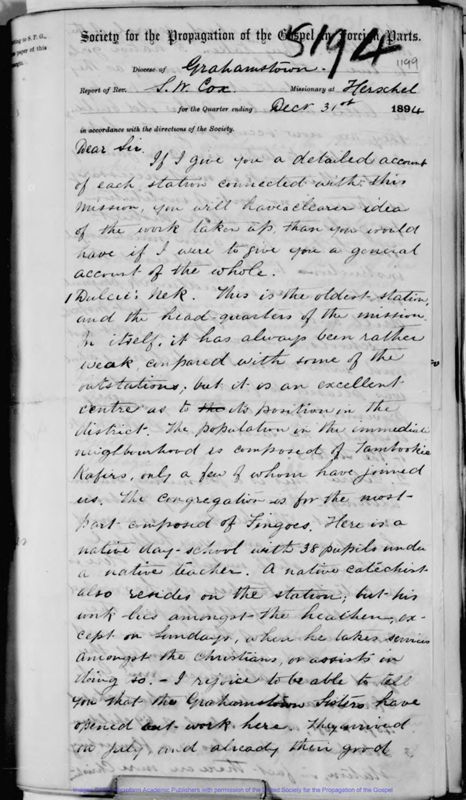 ating to S. P. G.,
e paper of this
Society for the Propagation of the Gospel in Foreign Parts.
5194
1199
Diocese of Grahamstown.
Report of Rev. S. W. Cox Missionary at Herschel
for the Quarter ending Decr 31st 1894
in accordance with the directions of the Society.
Dear Sir.
If I give you a detailed account
of each station connected with this
Mission, you will have a clearer idea
of the work taken up, than you would
have if I were to give you a general
account of the whole.
1 Dulcie's Nek. This is the oldest station,
and the head-quarters of the mission.
In itself, it has always been rather
weak, compared with some of the
outstations; but it is an excellent
centre as to the its position in the
district. The population in the immediate
neighbourhood is composed of Tambookie
Kafirs, only a few of whom have joined
us. The congregation is for the most
part composed of Fingoes. Here is a
native day-school with 38 pupils under
a native teacher. A native catechist
also resides on the station; but his
work lies amongst the heathen, ex-
cept on Sundays, when he takes services
amongst the Christians, or assists in
doing so. - I rejoice to be able to tell
you that the Grahamstown Sisters have
opened out work here. They arrived
in July and already their good